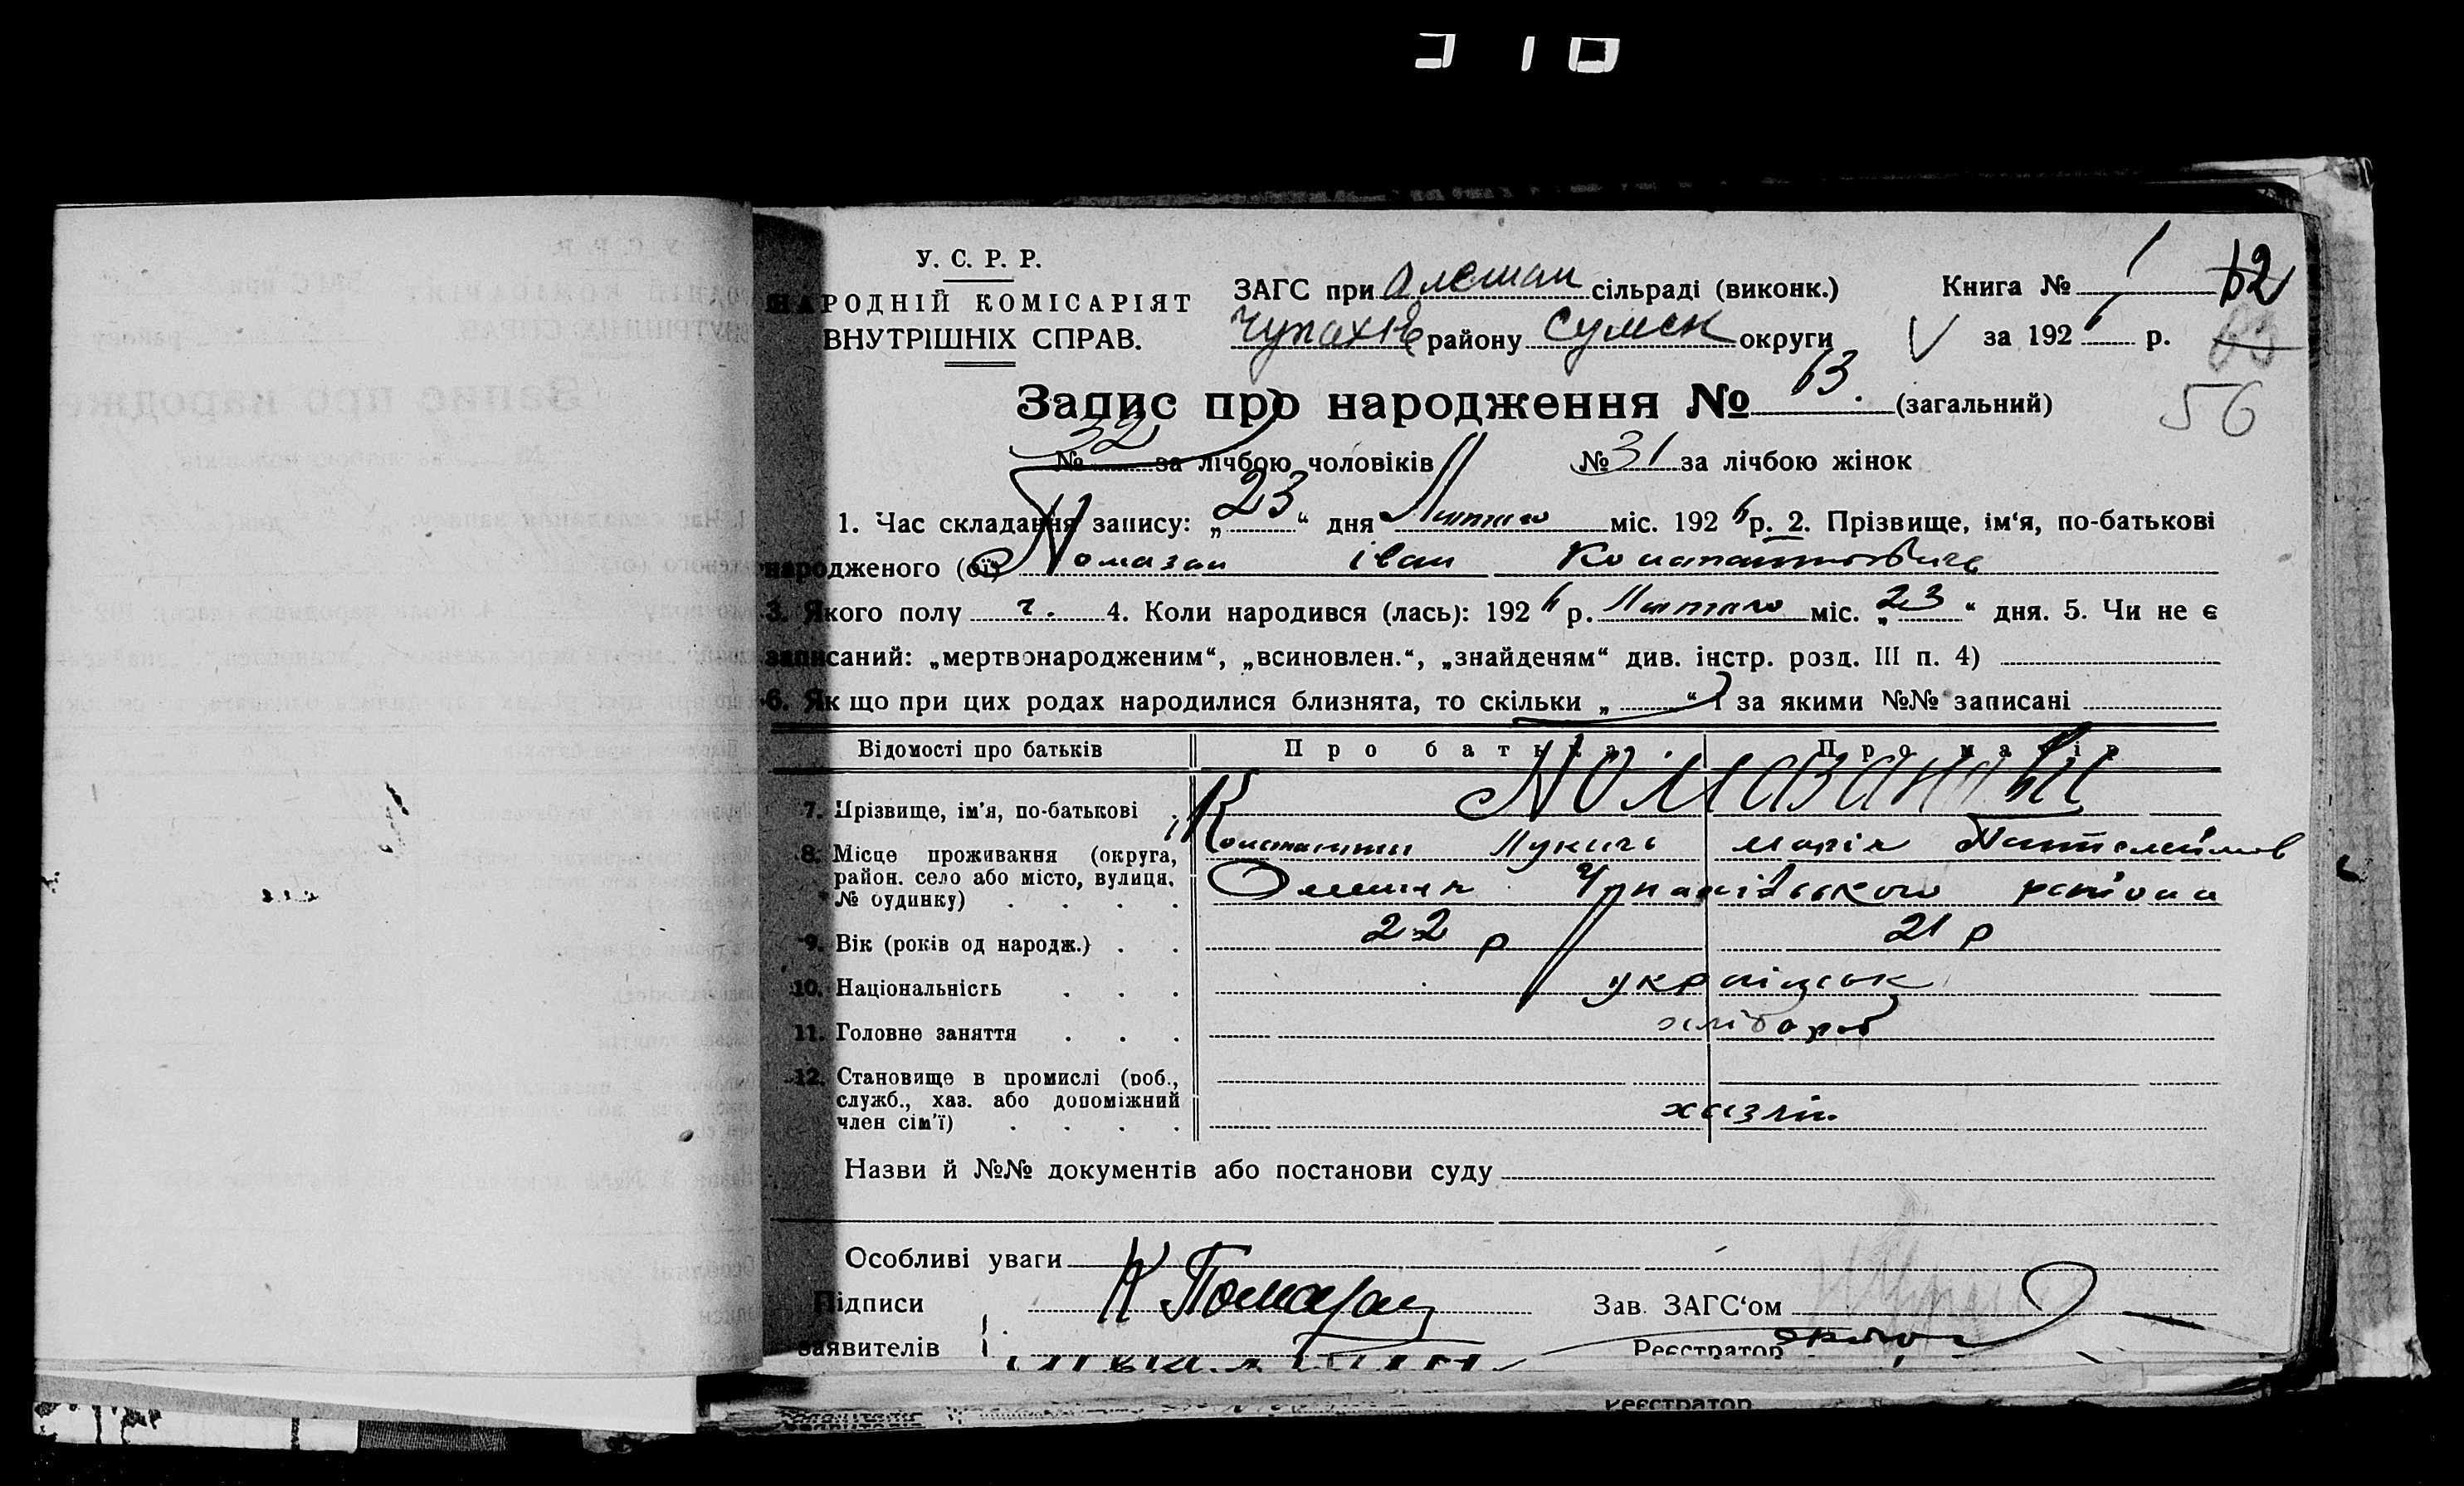 У. С. Р. Р.
НАРОДНІЙ КОМІСАРІЯТ
ВНУТРІШНІХ СПРАВ.
ЗАГС при Олешан сільраді (виконк.)
Чупахів району Сумск округи
Книга № 1
за 1926 р.
62
56
Запис про народження № 63. (загальний)
№ 32 за лічбою чоловіків № 31 за лічбою жінок
1. Час складання запису: „23“ дня Лютого міс. 1926 р. 2. Прізвище, ім‘я, по-батькові
народженого (ої) Помазан Іван Константинович
3. Якого полу ч. 4. Коли народився (лась): 1926 р. Лютого міс. „23“ дня. 5. Чи не є
записаний: „мертвонародженим“, „всиновлен.“, „знайденям“ див. інстр. розд. III п. 4)
6. Як що при цих родах народилися близнята, то скільки „ “ і за якими №№ записані
Відомості про батьків Про батька Про матір
7. Прізвище, ім‘я, по-батькові Помазанови
Константин Лукич Марія Пантелеймов
8. Місце проживання (округа, район. село або місто, вулиця. № будинку) Олешня Чупахівського района
9. Вік (років од народж.) 22 р 21 р
10. Національність українськ
11. Головне заняття хлібороб
12. Становище в промислі (роб., служб., хаз. або допоміжний член сім'ї) хазяїн
Назви й №№ документів або постанови суду
Особливі уваги
Підписи К Помазан Зав. ЗАГС‘ом
заявителів Реєстратор
Реєстратор